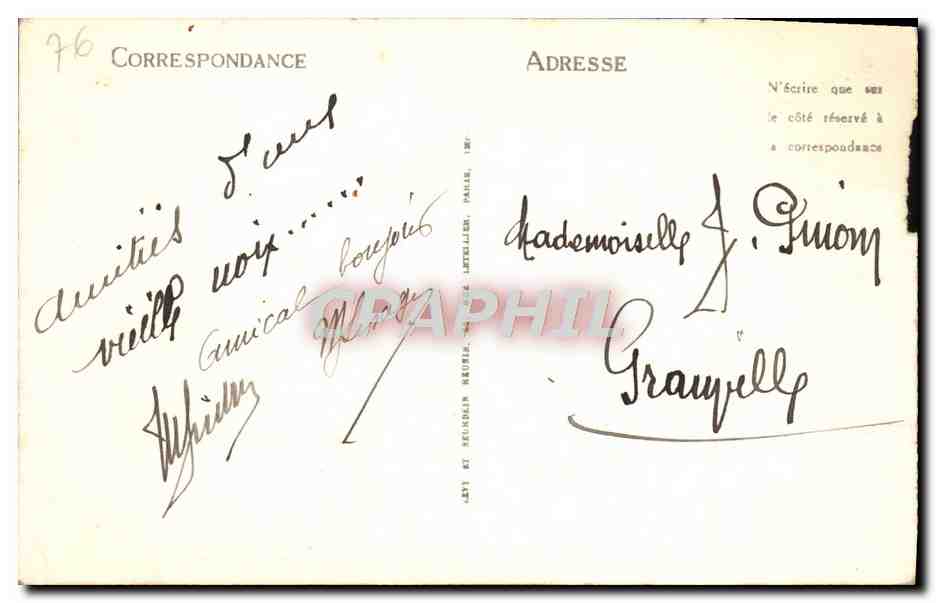 76
CORRESPONDANCE
ADRESSE
N'écrire que sur
le côté réservé à
la correspondance
amitiés d'une
vieille noix......
Amical bonjour
Mademoiselle J.
Granville
LEVY ET NEURDEIN RÉUNIS, RUE LETELLIER, PARIS
CPAPHIL